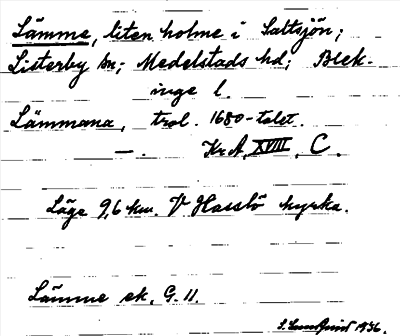 Lämme, liten holme i Saltsjön;
Listerby sn; Medelstads hd; Blek-
inge l.
Lämmana, trol. 1680-talet.
—. Kr A, XVIII, C.
Läge 9,6 km. V Hasslö kyrka.
Lämme ek. G. 11.
S. Lundquist 1936.